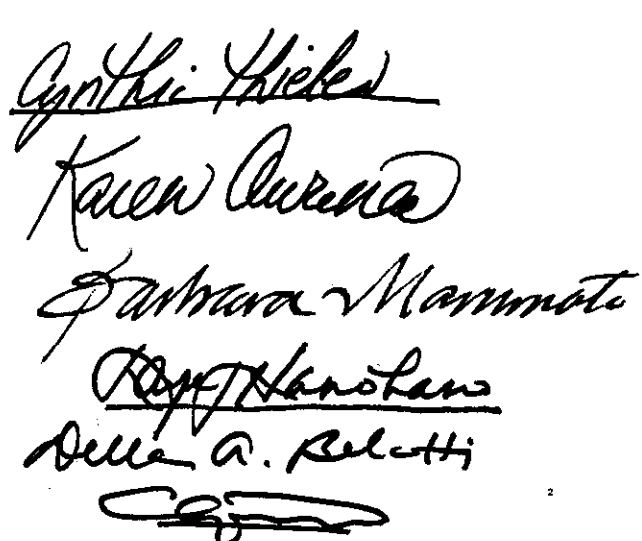 Cynthia Thielen
Karen Awana
Barbara Marumoto
Faye Hanohano
Della A. Belatti
2